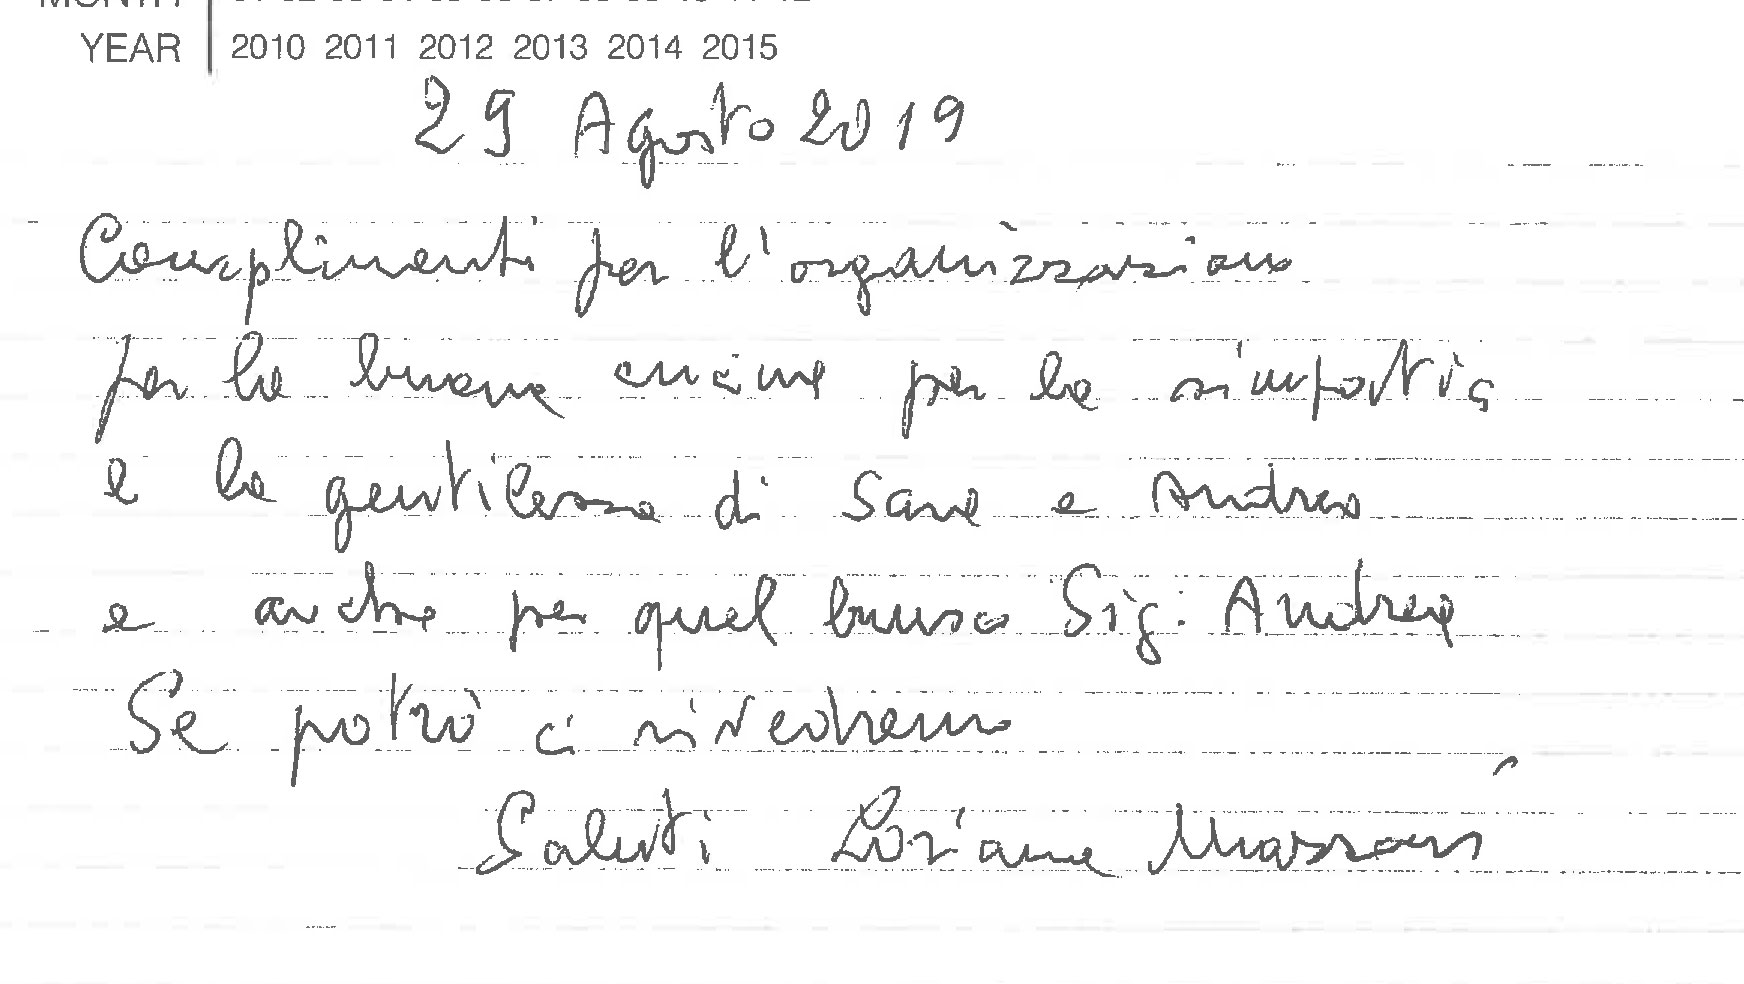 YEAR 2010 2011 2012 2013 2014 2015
29 Agosto 2019
Complimenti per l'organizzazione
per la buona cucina per la simpatia
e la gentilezza di Sara e Andrea
e anche per quel buuso Sig: Andrea
Se potrò ci rivedremo
Saluti Loriana